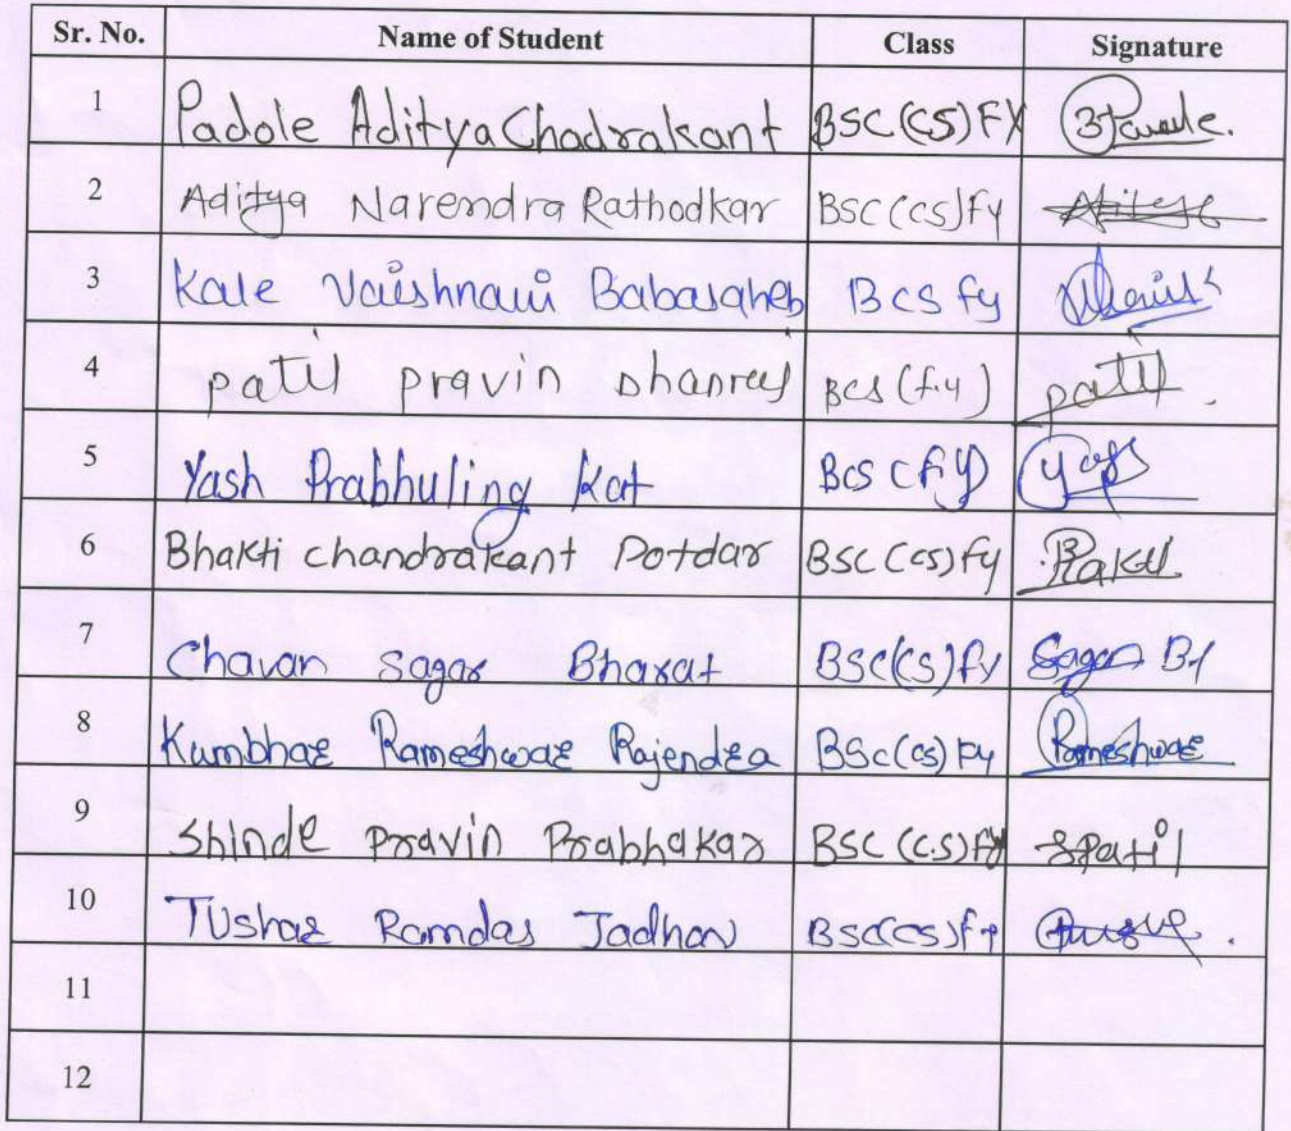 Sr. No. Name of Student Class Signature
1 Padole Aditya Chadrakant BSC (CS) FY
2 Aditya Narendra Rathodkar BSC (CS) Fy
3 Kale Vaishnavi Babasaheb BCS fy
4 patil pravin Dhanraj BCS (f.y) patil.
5 Yash Prabhuling Kat BCS (f.y) Yash
6 Bhakti chandrakant Potdar BSC (CS) fy Bhakti
7 Chavan sagar Bharat BSC(CS) fy Sagar
8 Kumbhar Rameshwar Rajendra BSc(cs) Fy Rameshwar
9 Shinde Pravin Prabhakar BSC (CS) fy SPatil
10 Tushar Ramdas Jadhav BSC(CS) fy
11
12